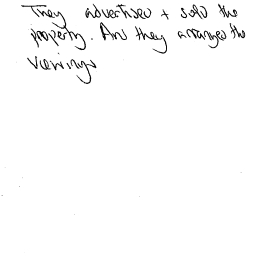 They advertised + sold the
property. And they arranged the
viewings